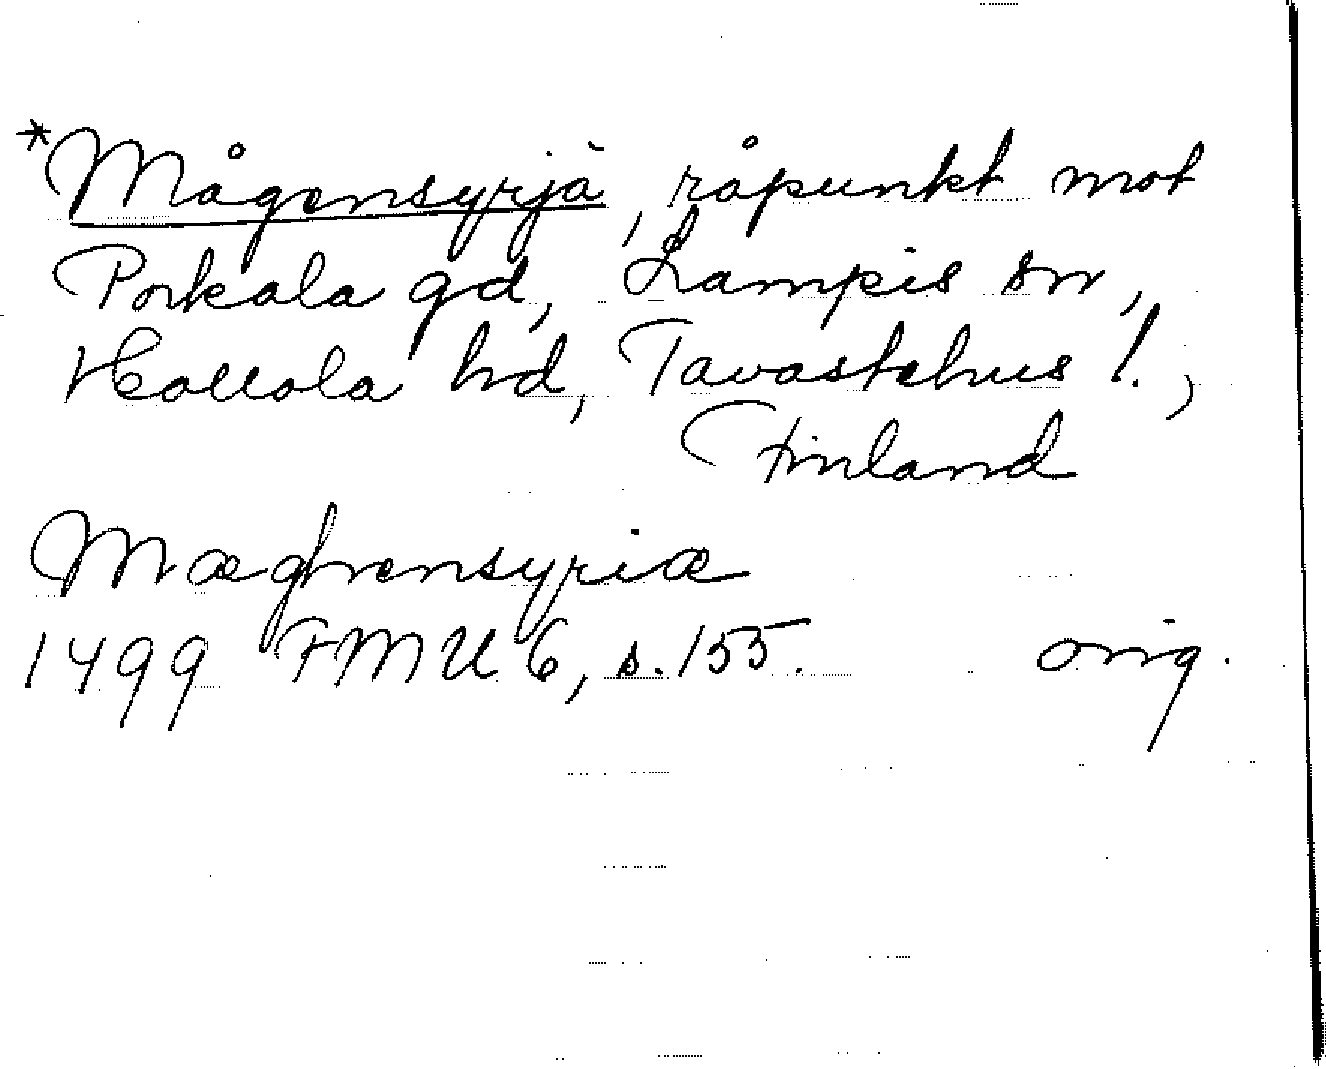 *Mågensyrjä, råpunkt mot
Porkala gd, Lampis sn,
Hollola hd, Tavastehus l.,
Finland
Mæghensyriæ
1499 FMU 6, s. 155. orig.